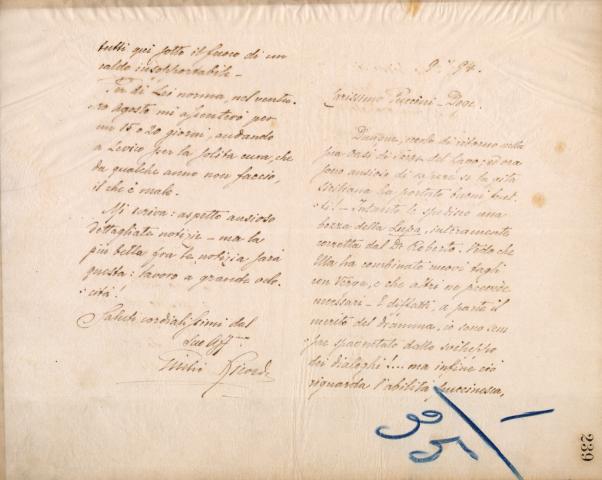 tutti qui sotto il fuoco di un
caldo insopportabile –
Per di Lei norma, nel ventu-
ro Agosto mi assenterò per
un 15 o 20 giorni, andando
a Levico per la solita cura, che
da qualche anno non faccio,
il che è male.
Mi scriva: aspetto ansioso
dettagliate notizie – ma la
più bella fra le notizie sarà
questa: lavoro a grande velo-
cità!
Saluti cordialissimi del
Suo Aff.mo
Giulio Ricordi
94.
Carissimo Puccini – Doge.
Dunque, eccolo di ritorno nella
sua oasi di Torre del Lago; ed ora
sono ansioso di sapere se la gita
Siciliana ha portato buoni frut-
ti! – Intanto le spedisco una
bozza della Lupa, interamente
corretta dal De Roberto. Vedo che
Ella ha combinato nuovi tagli
con Verga, e che altri ne
necessari – E diffatti, a parte il
merito del dramma, io sono sem
pre spaventato dallo sviluppo
dei dialoghi!.... ma infine ciò
riguarda l'abilità puccinesca,
239